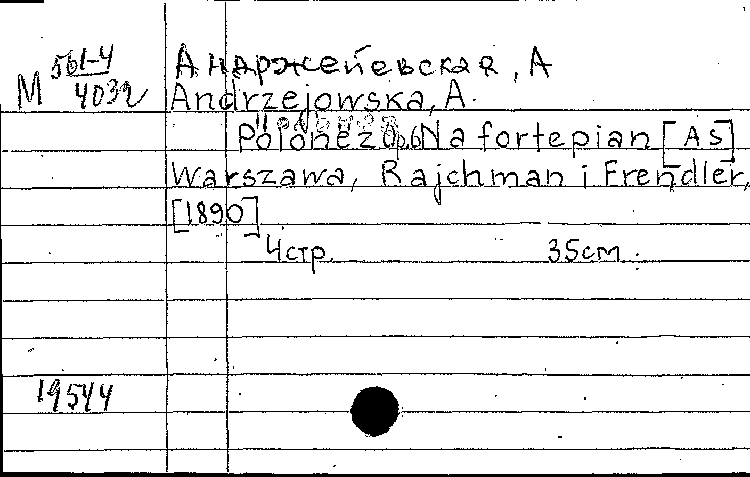 М 561-4
4032
Анаржеевская, А
Andrzejowska, A.
Polonez Op.6 Na fortepian [As]
Warszawa, Rajchman i Frendler,
[1890]
4 стр. 35 см.
19544